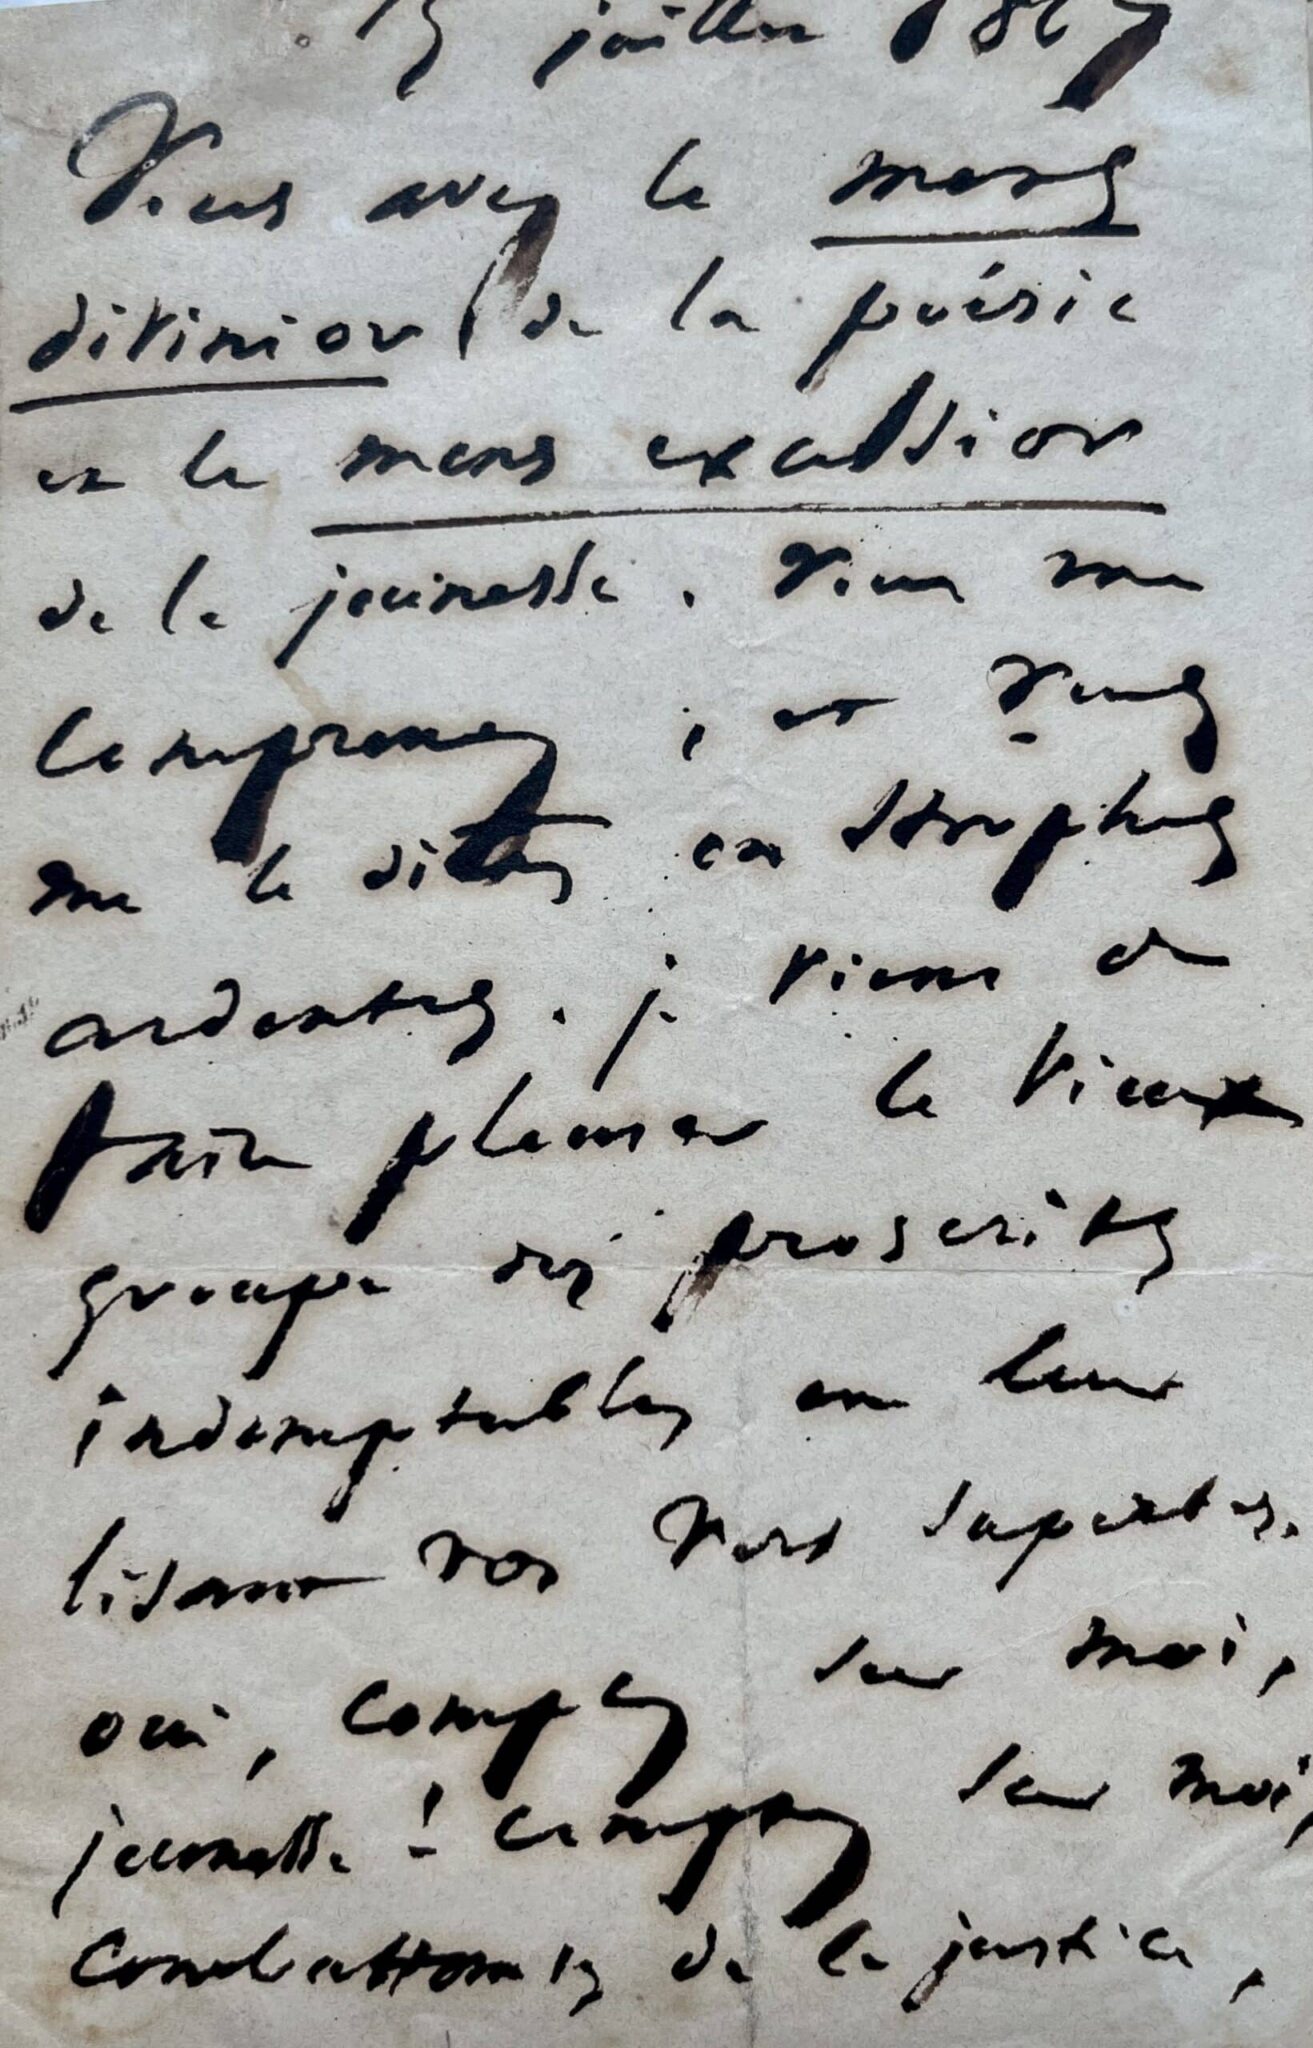 15 juillet 1867
Vous avez le mens
divinior de la poésie
et le mens excelsior
de la jeunesse. Vous me
comprenez ; et vous
me le dites en strophes
ardentes. je viens de
faire pleurer le vieux
groupe des proscrits
indomptables en leur
lisant vos vers superbes.
oui, comptez sur moi,
jeunesse ! comptez sur moi,
combattants de la justice,